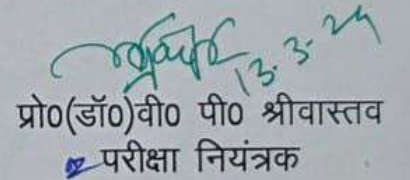 13.3.24
प्रो0(डॉ0)वी0 पी0 श्रीवास्तव
परीक्षा नियंत्रक